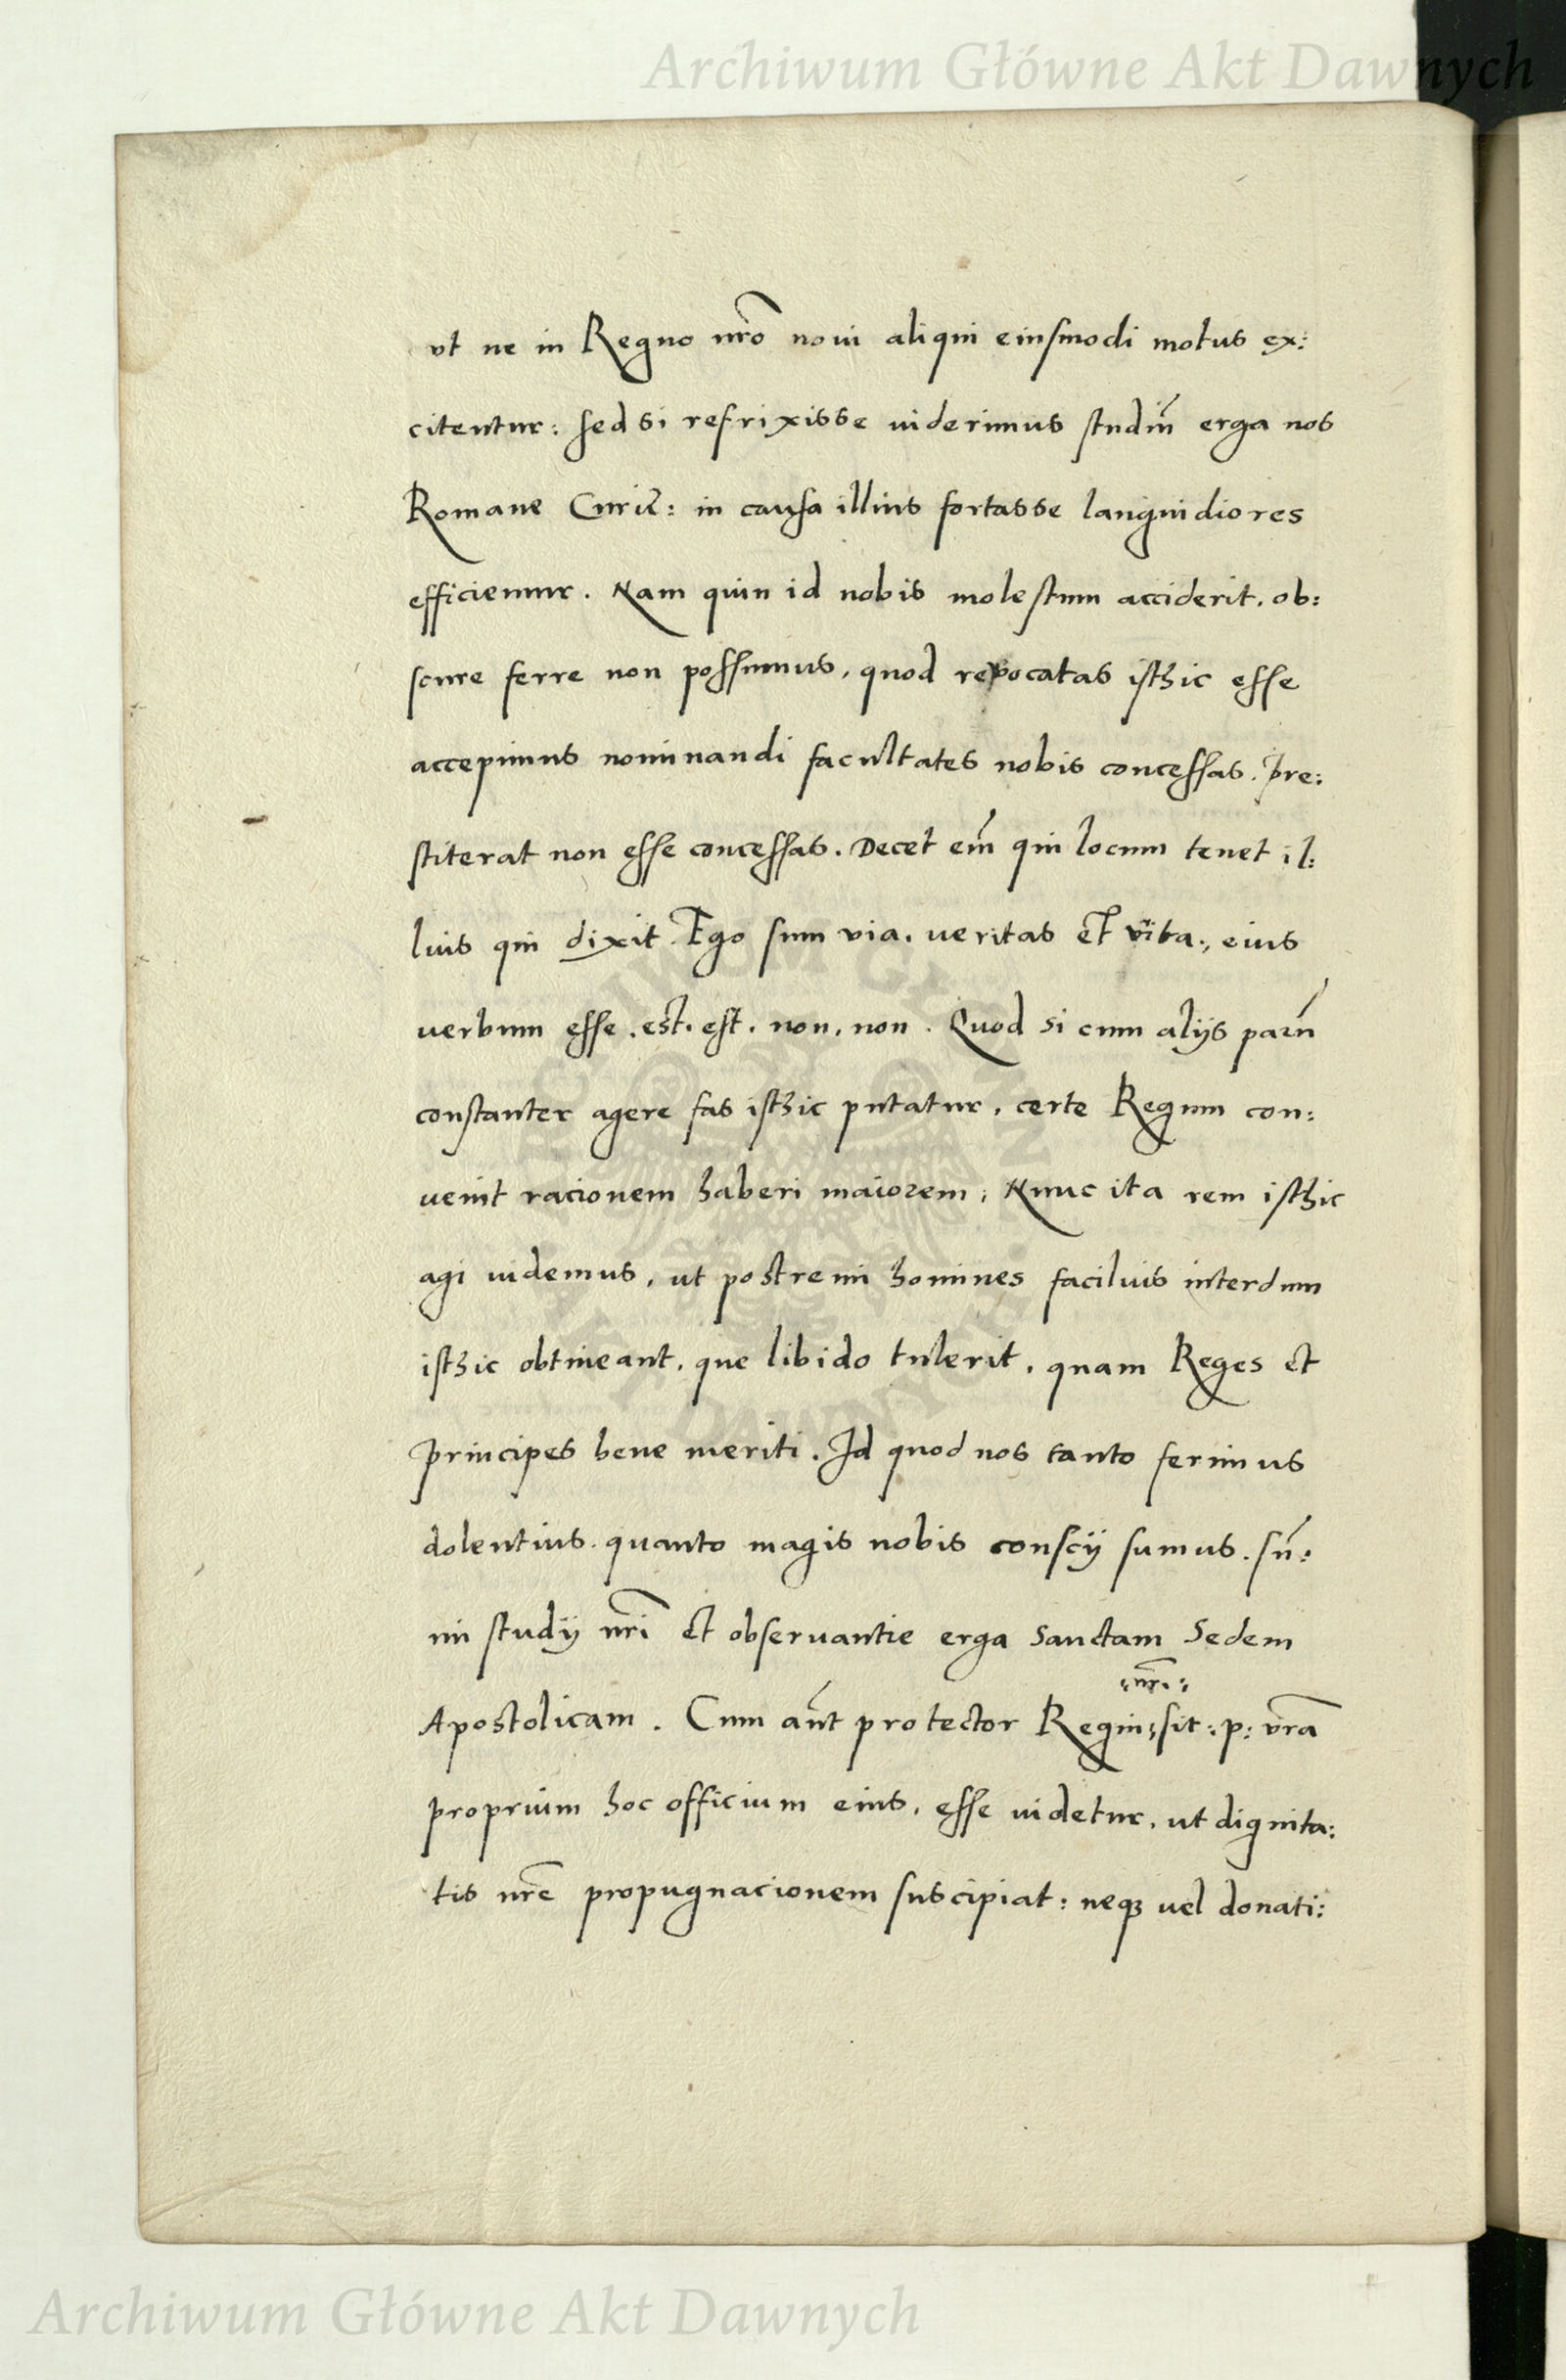 Archiwum Główne Akt Dawnych
ut ne in Regno nr̃o noui aliqui eiusmodi motus ex:
citentur: sed si refrixisse uiderimus studiũ erga nos
Romane Curiȩ: in causa illius fortasse languidiores
efficiemur. Nam quin id nobis molestum acciderit, ob:
scure ferre non possumus, quod revocatas isthic esse
accepimus nominandi facultates nobis concessas. Pre:
stiterat non esse concessas. Decet em̃ qui locum tenet il:
lius qui dixit Ego sum via, ueritas et vita:, eius
uerbum esse, est, est, non, non. Quod si cum alijs parũ
constanter agere fas isthic putatur, certe Regum con:
uenit racionem haberi maiorem; Nunc ita rem isthic
agi uidemus, ut postremi homines facilius interdum
isthic obtineant, que libido tulerit, quam Reges et
principes bene meriti. Id quod nos tanto ferimus
dolentius, quanto magis nobis conscij sumus, sũ:
mi studij nr̃i et obseruantie erga Sanctam Sedem
:nr̃i:
Apostolicam. Cum aũt protector Regni: sit: p: vr̃a
proprium hoc officium eius, esse uidetur, ut dignita:
tis nr̃e propugnacionem suscipiat: neqꝫ uel donati:
Archiwum Główne Akt Dawnych